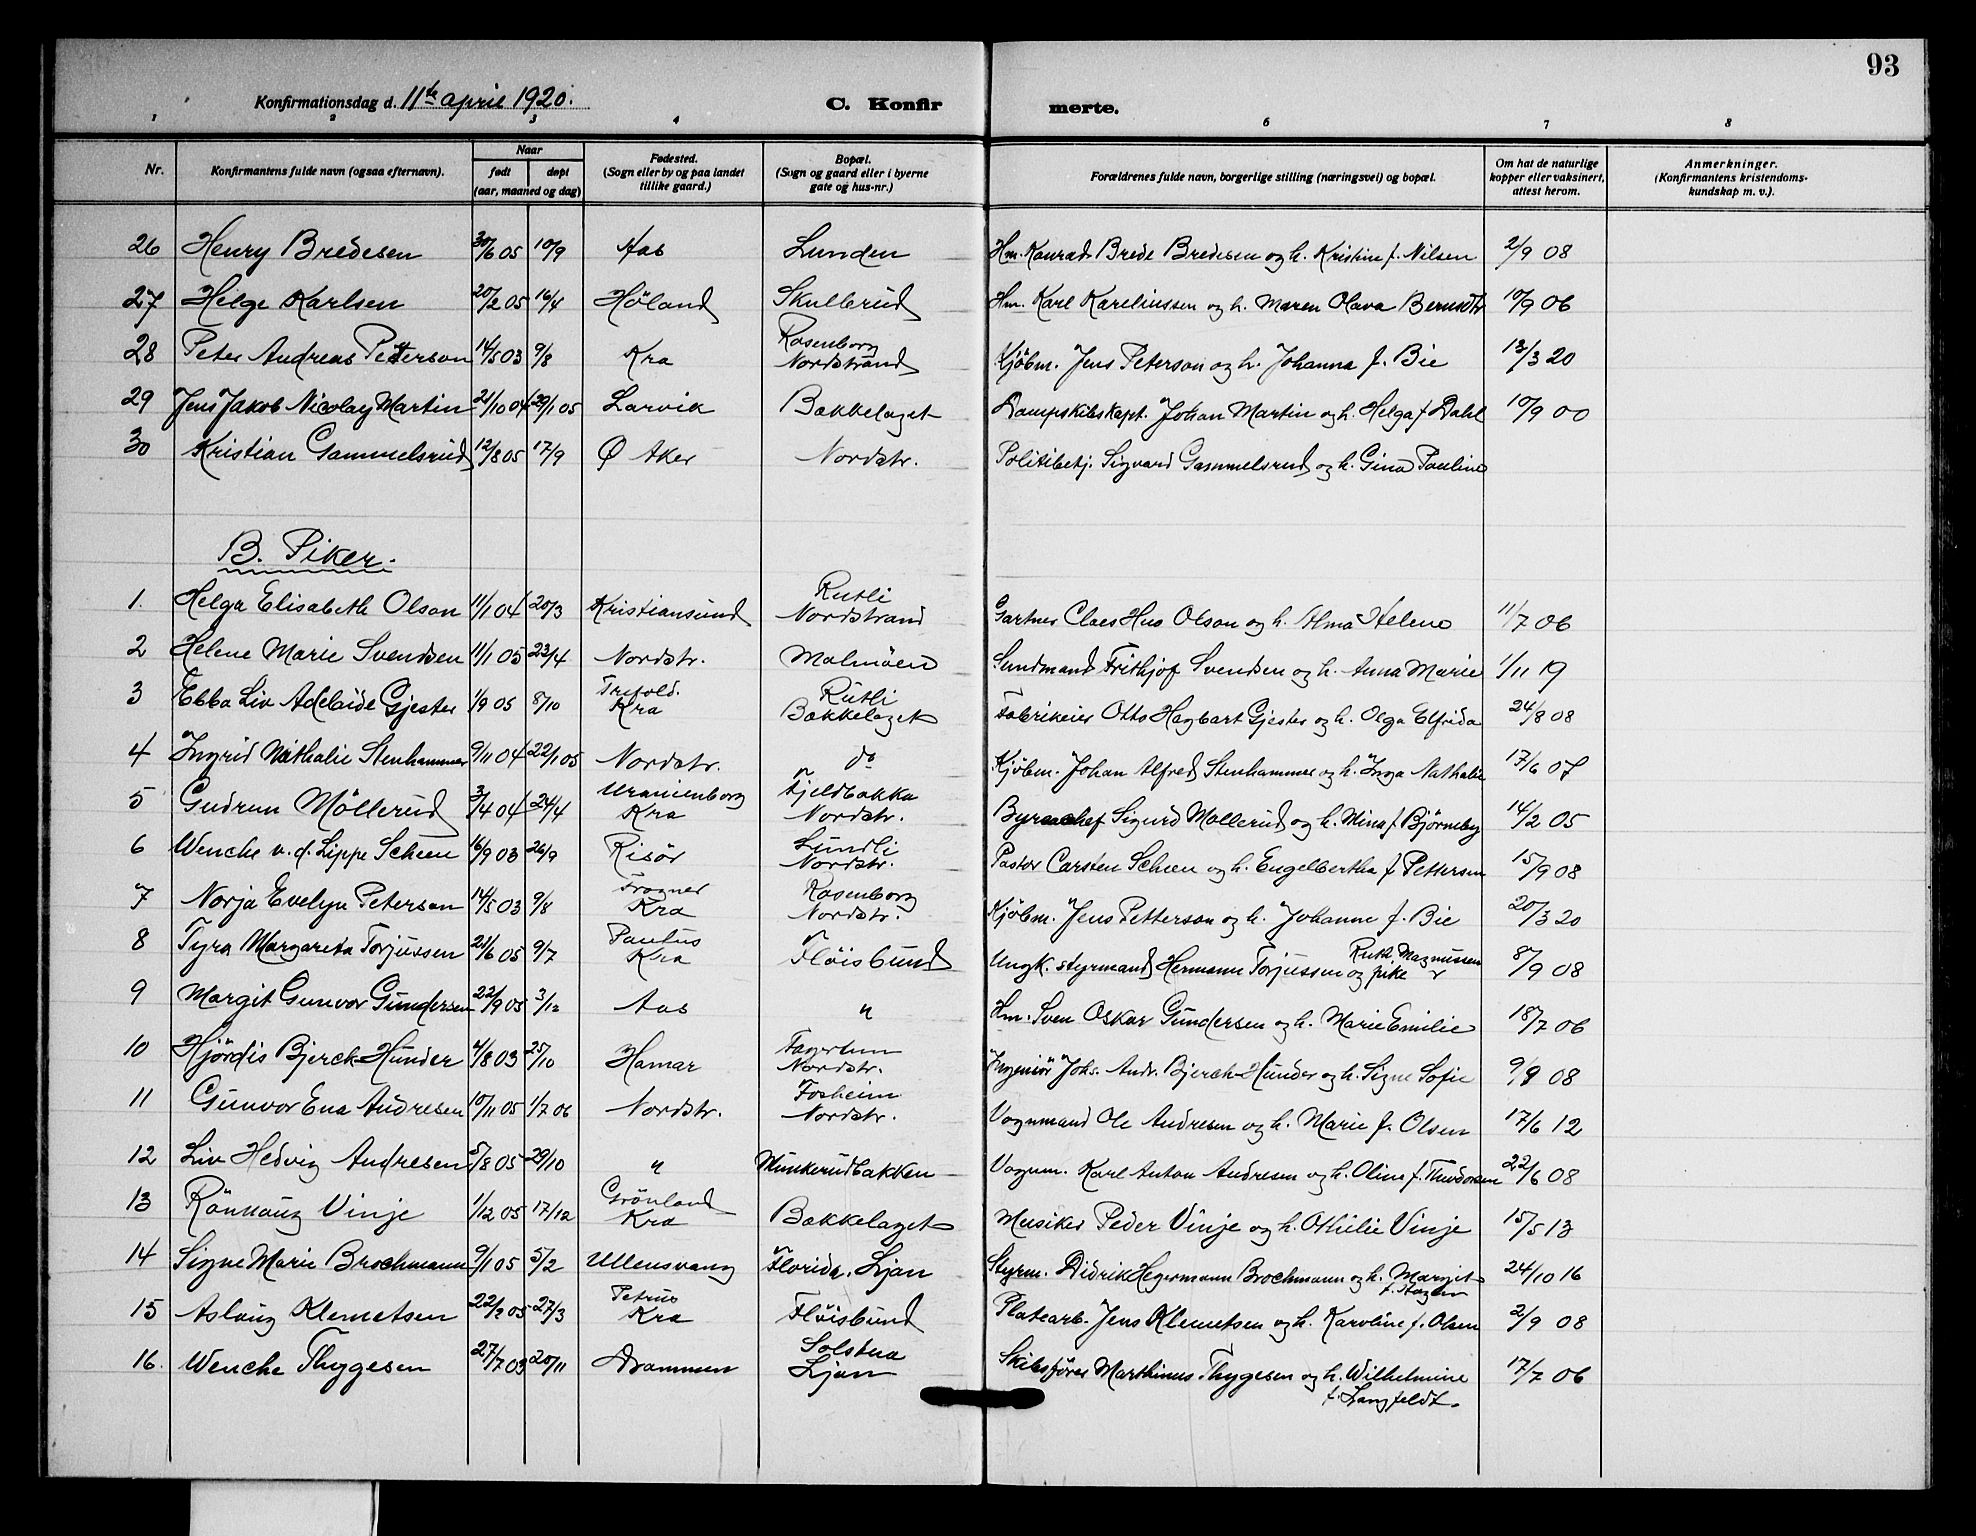 93
Konfirmationsdag d. 11te april 1920. C. Konfir merte.
1 2 3 4 6 7 8
Nr. Konfirmantens fulde navn (ogsaa efternavn). Naar født døpt (aar, maaned og dag) Fødested. (Sogn eller by og paa landet tillike gaard.) Bopæl. (Sogn og gaard eller i byerne gate og hus-nr.) Forældrenes fulde navn, borgerlige stilling (næringsvei) og bopæl. Om hat de naturlige kopper eller vaksinert, attest herom. Anmerkninger. (Konfirmantens kristendomskundskap m. v.).
26 Henry Bredesen 30/6 05 10/9 Aas Lunden Hm. Konrad Brede Bredesen og h. Kristine f. Nilsen 2/9 08
27 Helge Karlsen 20/2 05 16/4 Höland Skullerud Hm. Karl Kareliussen og h. Maren Olava Berntsdtr 10/9 06
28 Peter Andreas Petterson 14/5 03 9/8 Kra Rosenborg Nordstrand Kjöbm. Jens Peterson og h. Johanna f. Bie 13/3 20
29 Jens Jakob Nicolay Martin 21/10 04 29/1 05 Larvik Bækkelaget Dampskibskapt. Johan Martin og h. Helga f Dahl 10/9 00
30 Kristian Gammelsrud 12/8 05 17/9 Ø Aker Nordstr. Politibetj. Sigvard Gammelsrud og h. Gina Pauline
B. Piker.
1. Helga Elisabeth Olson 11/1 04 20/3 Kristiansund Rutli Nordstrand Gartner Claes Hus Olson og h. Alma Helene 11/7 06
2 Helene Marie Svendsen 11/1 05 23/4 Nordstr. Malmöen Sundmand Frithjof Svendsen og h. Anna Marie 1/11 19
3 Ebba Liv Adelaide Gjester 1/9 05 8/10 Trefold. Kra Rutli Bækkelaget Fabrikeier Otto Hagbart Gjester og h. Olga Elfrida 24/8 08
4 Ingrid Nathalie Stenhammer 9/11 04 22/1 05 Nordstr. do Kjöbm. Johan Alfred Stenhammer og h. Inga Nathalie 17/6 07
5 Gudrun Möllerud 3/4 04 24/4 Uranienborg Kra Fjeldbakka Nordstr. Byraachef Sigurd Möllerud og h. Mina f. Björneby 14/2 05
6 Wenche v. d. Lippe Scheen 16/9 03 26/9 Risör Lundli Nordstr. Pastor Carsten Scheen og h. Engelbertha f Pettersen 15/9 08
7 Norja Evelyn Peterson 14/5 03 9/8 Frogner Kra Rosenborg Nordstr. Kjöbm. Jens Petterson og h. Johanne f. Bie 20/3 20
8 Tyra Margareta Torjussen 21/6 05 9/7 Paulus Kra Flöisbund Ungk. styrmand Hermann Torjussen og pike Ruth Magnussen 8/9 08
9 Margit Gunvor Gundersen 22/9 05 3/12 Aas " Hm. Sven Oskar Gundersen og h. Marie Emilie 18/7 06
10 Hjördis Bjerck-Hunder 4/8 03 25/10 Hamar Fagertun Nordstr. Ingeniör Johs. Andr. Bjerck-Hunder og h. Signe Sofie 9/9 08
11 Gunvor Ena Andresen 10/11 05 1/7 06 Nordstr. Fosheim Nordstr. Vognmand Ole Andresen og h. Marie f. Olsen 17/6 12
12 Liv Hedvig Andresen 5/8 05 29/10 " Munkerudbakken Vognm. Karl Anton Andresen og h. Oline f. Theodorsen 22/6 08
13 Rönnaug Vinje 1/12 05 17/12 Grönland Kra Bækkelaget Musiker Peder Vinje og h. Othilie Vinje 15/5 13
14 Signe Marie Brochmann 9/1 05 5/2 Ullensvang Florida. Ljan Styrm. Didrik Hegermann Brochmann og h. Margit 24/10 16
15 Aslaug Klemetsen 22/2 05 27/3 Petrus Kra Flöisbund Platearb. Jens Klemetsen og h. Karoline f. Olsen 2/9 08
16. Wenche Thygesen 27/7 03 20/11 Drammen Solstua Ljan Skibsförer Marthinus Thygesen og h. Wilhelmine f. Langfeldt. 17/7 06